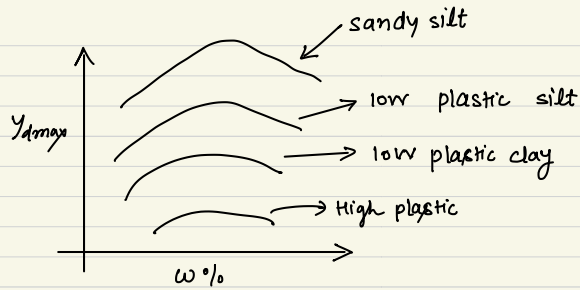 sandy silt
low plastic silt
γdmax
low plastic clay
High plastic
ω%